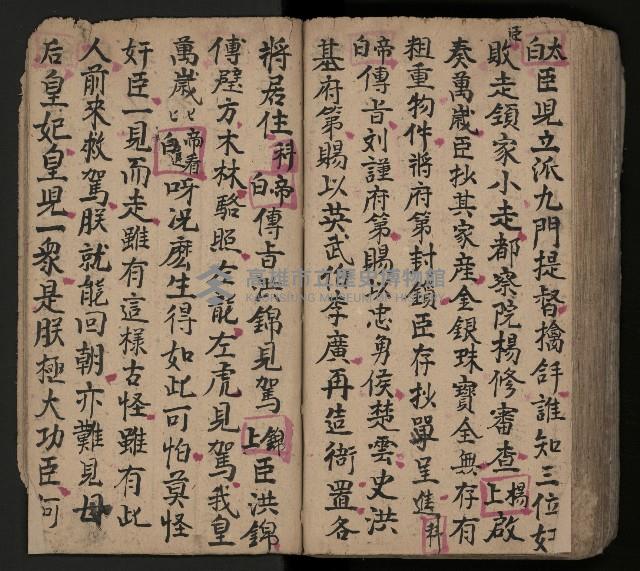 太白臣見立派九門提督擒舒誰知三位奸
臣敗走領家小走都察院楊修審查楊上啟
奏萬歲臣抄其家産金銀珠寶全無存有
粗重物件將府第封鎖臣存抄單呈進科
帝白傳旨刘謹府第賜以忠勇侯楚雲史洪
基府第賜以英武侯李廣再造衙置各
將居住科帝白傳旨洪錦見駕錦上臣洪錦
傳璧方木林駱照左龍左虎見駕我皇
萬歲匕匕帝看進白呀况庅生得如此可怕莫怪
奸臣一見而走雖有這樣古怪雖有此
人前來救駕朕就能回朝亦難見母
后皇妃皇兒一衆是朕極大功臣可
高雄市立歷史博物館
KAOHSIUNG MUSEUM OF HISTORY